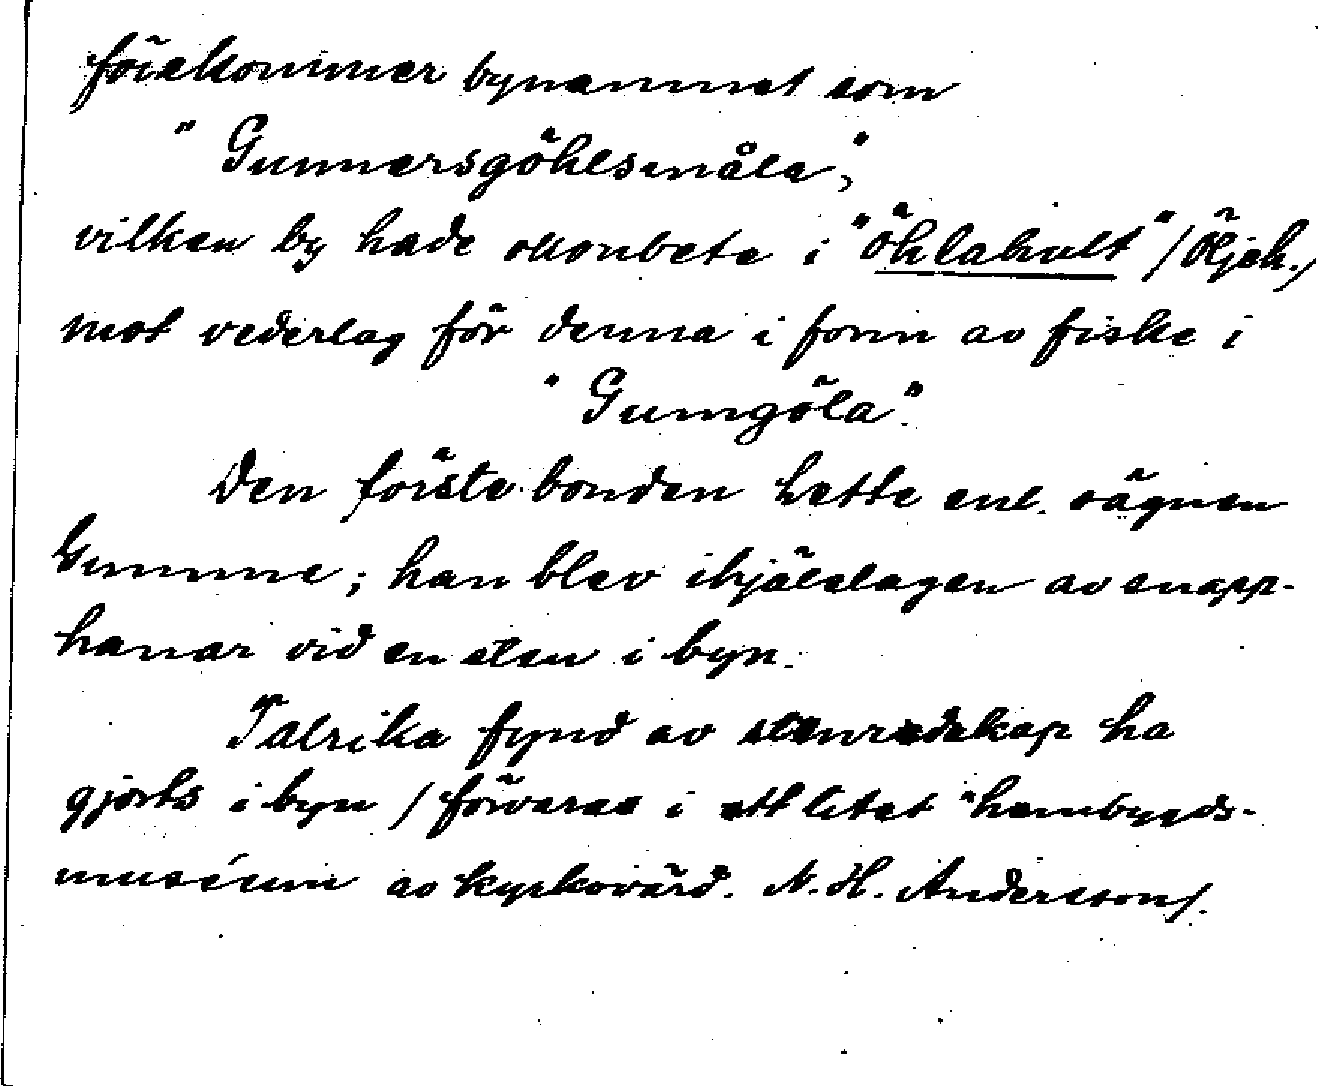 förekommer bynamnet som
"Gunnarsgöhlsmåla",
vilken by hade ollonbete i "Öhlahult" /Öljeh./
mot vederlag för denna i form av fiske i
"Gumgöla".
Den förste bonden hette enl. sägnen
Gumme; han blev ihjälslagen av snapp-
hanar vid en sten i byn.
Talrika fynd av stenredskap ha
gjorts i byn /förvaras i ett litet "hembygds-
muséum av kyrkovärd. N. H. Andersson/.